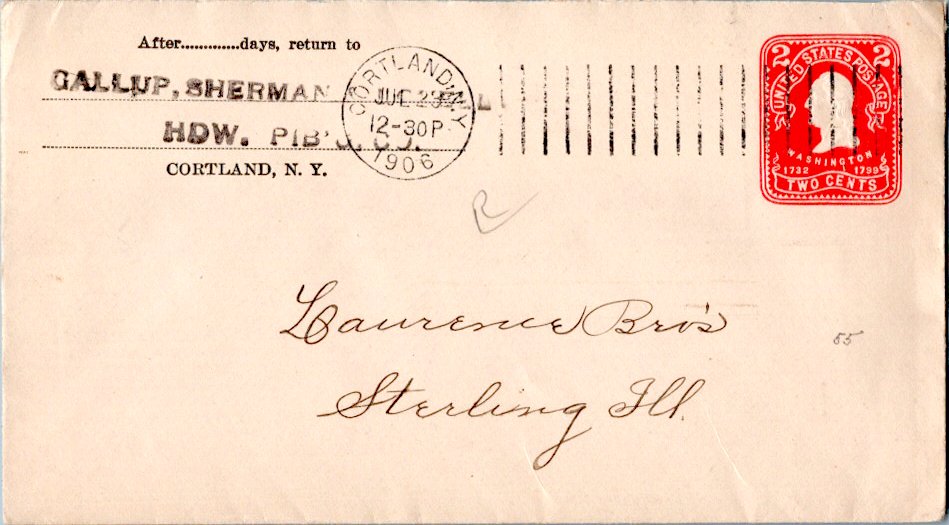 After.............days, return to
GALLUP, SHERMAN
HDW.
CORTLAND, N. Y.
CORTLAND N.Y.
12-30P
1906
2 2
UNITED STATES POSTAGE
WASHINGTON
1732 1799
TWO CENTS
R
Laurence Bro's
Sterling Ill.
55